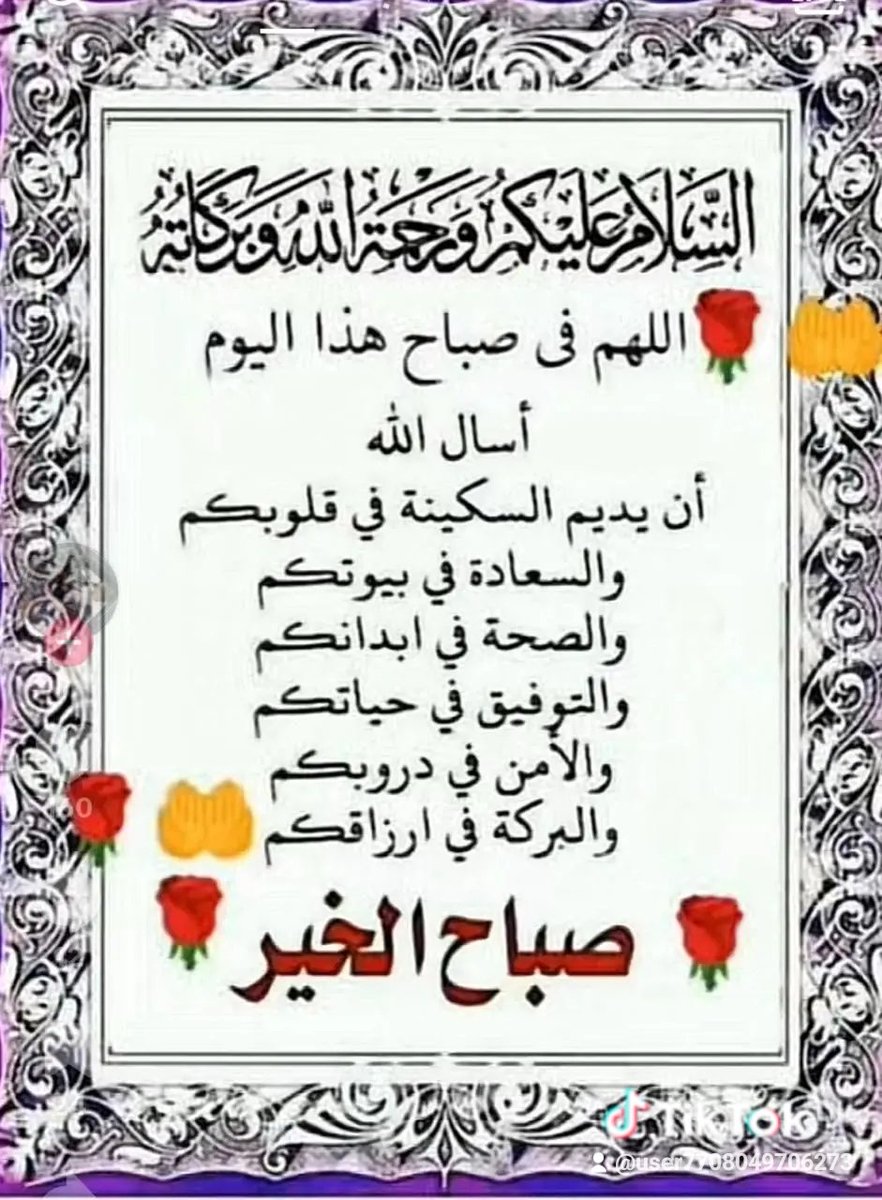 السَّلَامُ عَلَيْكُمْ وَرَحْمَةُ اللهِ وَبَرَكَاتُهُ
اللهم فى صباح هذا اليوم
أسال الله
أن يديم السكينة في قلوبكم
والسعادة في بيوتكم
والصحة في ابدانكم
والتوفيق في حياتكم
والأمن في دروبكم
والبركة في ارزاقكم
صباح الخير
TikTok
@user7708049706273